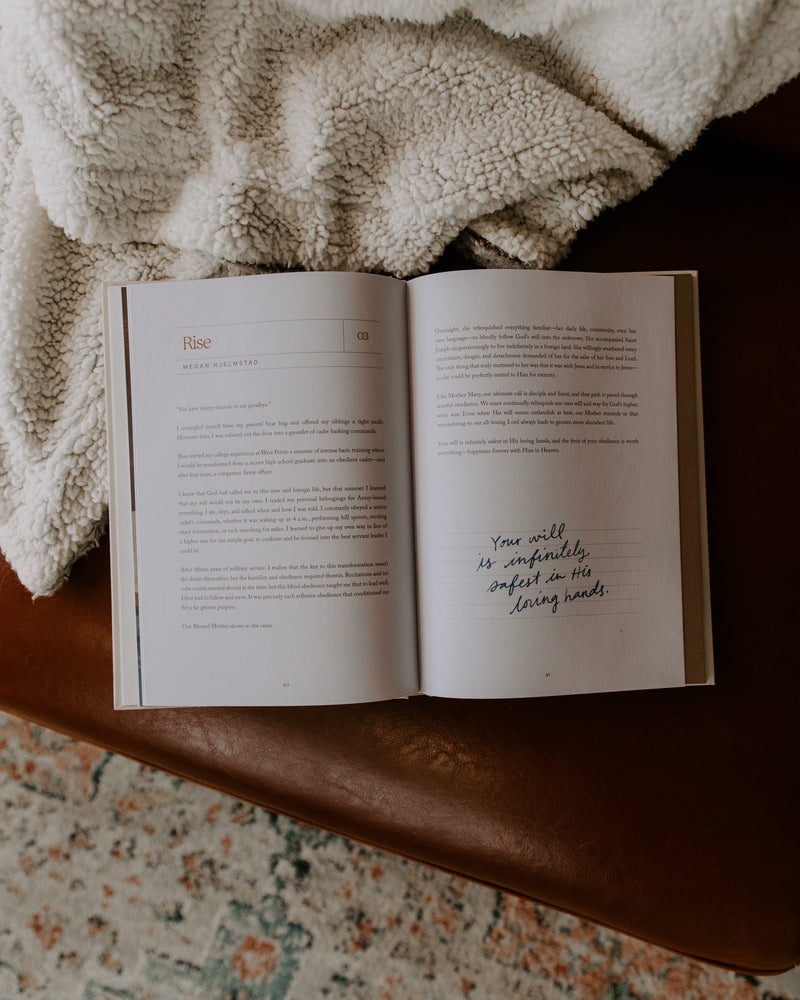 Rise
03
MEGAN HJELMSTAD
"You have ninety seconds to say goodbye."
I untangled myself from my parents' bear hug and offered my siblings a tight smile.
Moments later, I was ushered out the door into a gauntlet of cadre barking commands.
Thus started my college experience at West Point: a summer of intense basic training where
I would be transformed from a recent high school graduate into an obedient cadet—and
after four years, a competent Army officer.
I knew that God had called me to this new and foreign life, but that summer I learned
that my will would not be my own. I traded my personal belongings for Army-issued
everything. I ate, slept, and talked when and how I was told. I constantly obeyed a senior
cadet's commands, whether it was waking up at 4 a.m., performing hill sprints, reciting
exact information, or ruck marching for miles. I learned to give up my own way in lieu of
a higher way for one simple goal: to conform and be formed into the best servant leader I
could be.
After fifteen years of military service, I realize that the key to this transformation wasn't
the duties themselves, but the humility and obedience required therein. Recitations and ice
cube counts seemed absurd at the time, but this blind obedience taught me that to lead well,
I first had to follow and serve. It was precisely such reflexive obedience that conditioned me
for a far greater purpose.
Our Blessed Mother shows us the same.
40
Overnight, she relinquished everything familiar—her daily life, community, even her
own language—to blindly follow God's will into the unknown. She accompanied Saint
Joseph unquestioningly to live indefinitely in a foreign land. She willingly weathered every
uncertainty, danger, and detachment demanded of her for the sake of her Son and Lord.
The only thing that truly mattered to her was that it was with Jesus and in service to Jesus—
so she could be perfectly united to Him for eternity.
Like Mother Mary, our ultimate call is disciple and Saint, and that path is paved through
trustful obedience. We must continually relinquish our own will and way for God's higher,
wiser way. Even when His will seems outlandish at best, our Mother reminds us that
surrendering to our all-loving Lord always leads to greater, more abundant life.
Your will is infinitely safest in His loving hands, and the fruit of your obedience is worth
everything—happiness forever with Him in Heaven.
Your will
is infinitely
safest in His
loving hands.
41